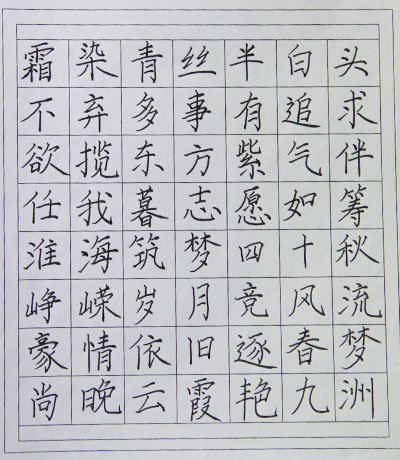 霜染青丝半白头
不弃多事有追求
欲揽东方紫气伴
任我暮志愿如筹
淮海筑梦四十秋
峥嵘岁月竞风流
豪情依旧逐春梦
尚晚云霞艳九洲